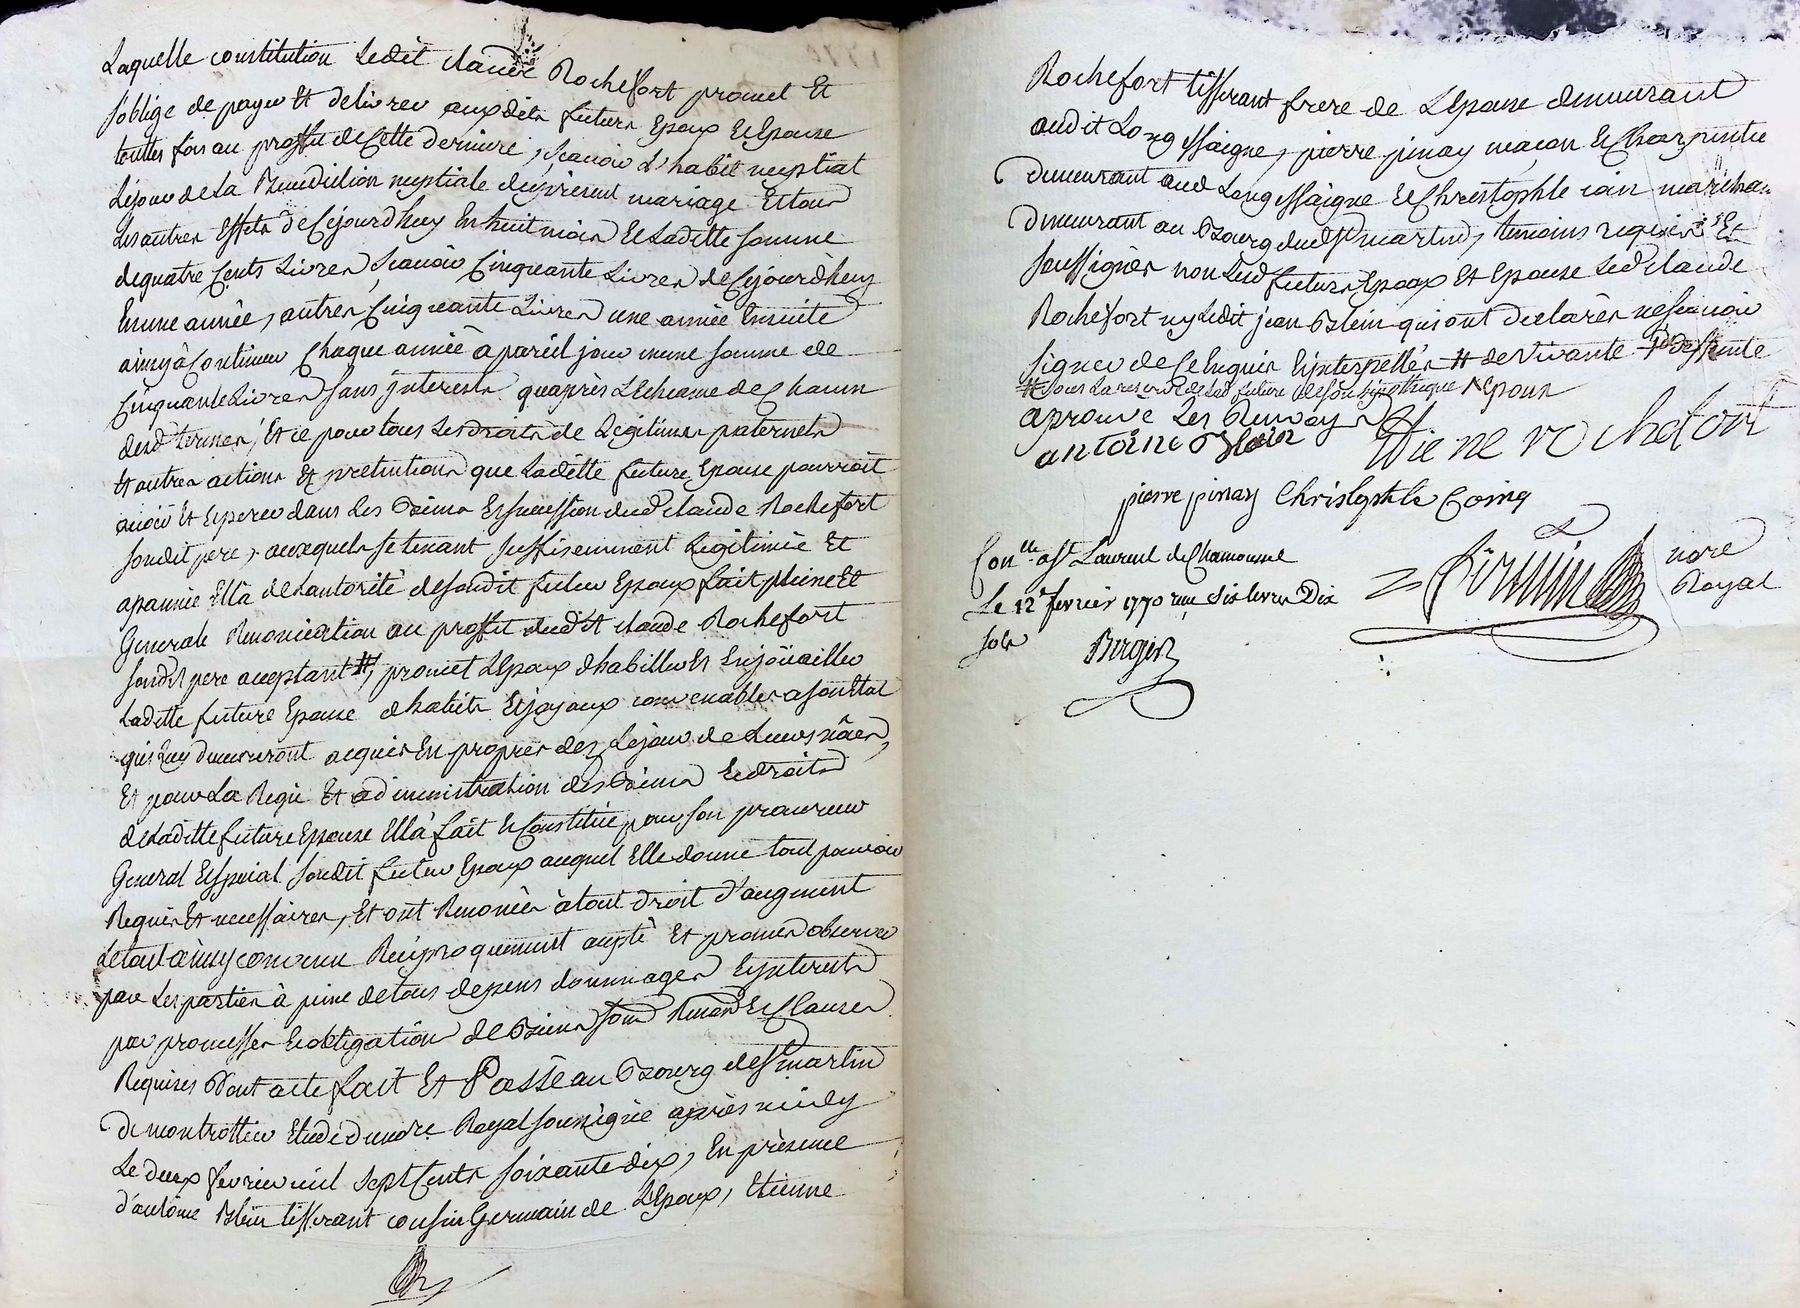 Laquelle constitution ledit claude Rochefort promet Et
s'oblige de payer Et delivrer auxdits futurs Epoux Et Epouse
touttes fois au proffit de Cette derniere, scavoir L'habit nuptial
Lejour de La Benediction nuptiale du present mariage Et tous
Les autres Effets de Cejourdhuy En huit mois Et Laditte somme
dequatre Cents Livres, scavoir Cinquante Livres de Cejourdhuy
En une année, autres Cinquante Livres une année Ensuite
ainsy à Continuer Chaque année à pareil jour meme somme de
Cinquante Livres sans jnterests qu'après L'Echeance de Chacun
desd. termes, Et ce pour tous Les droits de Légitimes paternels
Et autres actions Et pretentions que Laditte future Epouse pourroit
avoir Et Esperer dans Les Biens Et succession dud. claude Rochefort
sondit pere, auxquels se tenant suffisemment Legitimée Et
apannée Ella de L'autorité desondit futur Epoux fait pleine Et
Generale Renonciation au proffit dudit claude Rochefort
sondit pere acceptant #, promet L'Epoux d'habiller Et Enjoüailler
Laditte future Epouse d'habits Et joyaux convenables a son Etat
qui Luy demeureront acquis En propres dez Lejour de Leurs nôces,
Et pour La Regie Et administration des Biens Et droits
de Laditte future Epouse Ella fait Et Constitué pour son procureur
General Et special sondit futur Epoux auquel Elle donne tout pouvoir
Requis Et necessaires, Et ont Renoncés à tout droit d'augment
Le tout ainsy convenu Reciproquement accepté Et promis observer
par Les parties à peine de tous depens dommages Et jnterests
par promesses Et obligation de Biens soud. Renond. Et Clauses
Requises Dont acte fait Et Passé au Bourg de St martin
De montrottier Etude dunore Royal soussigné après midy
Le deux fevrier mil sept Cents soixante dix, En présence
d'antoine Blein tisserant cousin Germain de L'Epoux, Etienne
Rochefort tisserant frere de L'Epouse demeurant
audit Longessaigne, pierre pinay maçon Et Charpentier
demeurant aud Longessaigne Et Christophle coin marechal
demeurant au Bourg dud St martin, temoins requis Et
soussignés non Lesd futurs Epoux Et Epouse Led claude
Rochefort ny Ledit jean Blein qui ont declarés ne scavoir
signer de Ce Enquis Et jnterpellés # de Vivante
# sous La reserve de Lad future de son hypotheque
aprouvé Les Renvoys
antoine Blein Etiene rochefort
pierre pinay Christophle Coing
Con.lle a St Laurent de Chamousset
Le 12e fevrier 1770 reçu six livres Dix
sols
Bergier
nore
Royal